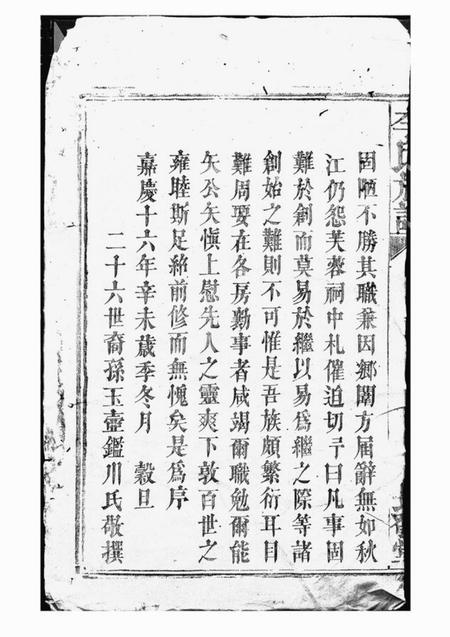 固陋不勝其職兼因鄉闈方届辭無如秋
江仍怨芙蓉祠中札催迫切予曰凡事固
難於創而莫易於繼以易爲繼之際等諸
創始之難則不可惟是吾族頗繁衍耳目
難周要在各房勤事者咸竭爾職勉爾能
矢公矢愼上慰先人之靈爽下敦百世之
雍睦斯足紹前修而無愧矣是爲序
嘉慶十六年辛未歲季冬月 穀旦
二十六世裔孫玉壺鑑川氏敬撰
李氏族譜